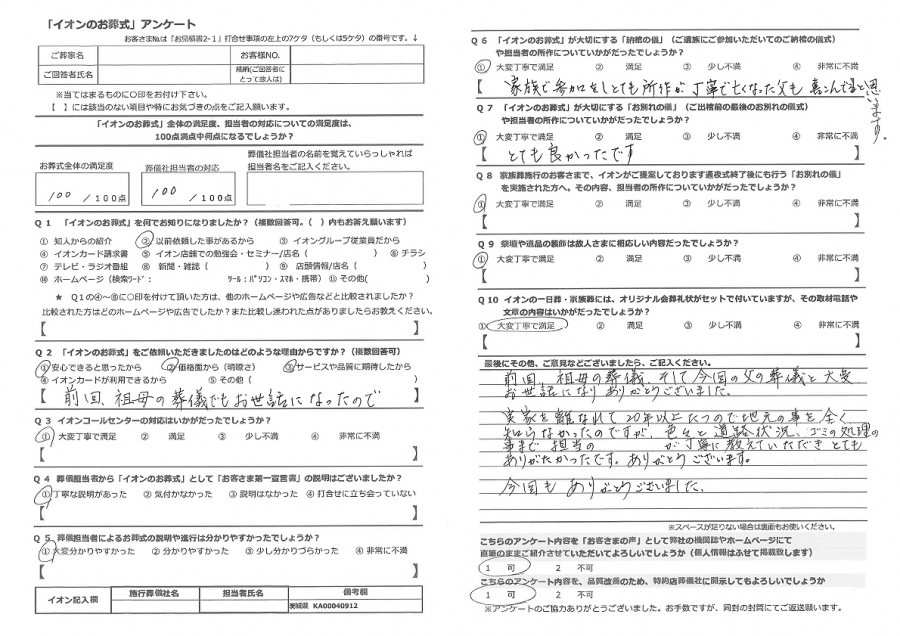 「イオンのお葬式」アンケート
お客さま№は「お見積書2-1」打合せ事項の左上の7ケタ（もしくは5ケタ）の番号です。↓
ご葬家名
お客様NO.
ご回答者氏名
続柄(ご回答者にとって故人は)
※当てはまるものに○印をお付け下さい。
【　】には該当のない項目や特にお気づきの点をご記入願います。
「イオンのお葬式」全体の満足度、担当者の対応についての満足度は、
100点満点中何点になるでしょうか？
お葬式全体の満足度
葬儀社担当者の対応
葬儀社担当者の名前を覚えていらっしゃれば
担当者名をご記入ください。
100 /100点
100 /100点
Q1 「イオンのお葬式」を何でお知りになりましたか？（複数回答可。（ ）内もお答え願います）
① 知人からの紹介 ② 以前依頼した事があるから ③ イオングループ従業員だから
④ イオンカード請求書 ⑤ イオン店舗での勉強会・セミナー/店名（ ） ⑥ チラシ
⑦ テレビ・ラジオ番組 ⑧ 新聞・雑誌（ ） ⑨ 店頭情報/店名（ ）
⑩ ホームページ（検索ワード： ツール：パソコン・スマホ・携帯）⑪ その他( )
★ Q1の④～⑩に○印を付けて頂いた方は、他のホームページや広告などと比較されましたか？
比較された方はどのホームページや広告でしたか？また比較し迷われた点がありましたらお教えください。
【 】
Q2 「イオンのお葬式」をご依頼いただきましたのはどのような理由からですか？（複数回答可）
①安心できると思ったから ②価格面から（明瞭さ） ③サービスや品質に期待したから
④イオンカードが利用できるから ⑤その他（ ）
【 前回、祖母の葬儀でもお世話になったので 】
Q3 イオンコールセンターの対応はいかがでしたか？
① 大変丁寧で満足 ② 満足 ③ 少し不満 ④ 非常に不満
【 】
Q4 葬儀担当者から「イオンのお葬式」として「お客さま第一宣言書」の説明はございましたか？
①丁寧な説明があった ② 気付かなかった ③ 説明はなかった ④ 打合せに立ち会っていない
【 】
Q5 葬儀担当者によるお葬式の説明や進行は分かりやすかったでしょうか？
①大変分かりやすかった ② 分かりやすかった ③ 少し分かりづらかった ④ 非常に不満
【 】
イオン記入欄
施行葬儀社名
担当者氏名
備考欄
茨城県 KA00040912
Q6 「イオンのお葬式」が大切にする「納棺の儀」（ご遺族にご参加いただいてのご納棺の儀式）
や担当者の所作についていかがだったでしょうか？
① 大変丁寧で満足 ② 満足 ③ 少し不満 ④ 非常に不満
【 家族で参加をしとても所作が丁寧で亡くなった父も喜こんでると思います。
Q7 「イオンのお葬式」が大切にする「お別れの儀」（ご出棺前の最後のお別れの儀式）
や担当者の所作についていかがだったでしょうか？
① 大変丁寧で満足 ② 満足 ③ 少し不満 ④ 非常に不満
【 とても良かったです 】
Q8 家族葬施行のお客さまで、イオンがご提案しております通夜式終了後にも行う「お別れの儀」
を実施された方へ。その内容、担当者の所作についていかがだったでしょうか？
① 大変丁寧で満足 ② 満足 ③ 少し不満 ④ 非常に不満
【 】
Q9 祭壇や遺品の装飾は故人さまに相応しい内容だったでしょうか？
① 大変丁寧で満足 ② 満足 ③ 少し不満 ④ 非常に不満
【 】
Q10 イオンの一日葬・家族葬には、オリジナル会葬礼状がセットで付いていますが、その取材電話や
文章の内容はいかがだったでしょうか？
① 大変丁寧で満足 ② 満足 ③ 少し不満 ④ 非常に不満
【 】
最後にその他、ご意見などございましたら、ご記入ください。
前回、祖母の葬儀、そして今回の父の葬儀と大変
お世話になりありがとうございました。
実家を離なれて20年以上たつので地元の事を全く
知らなかったのですが、色々と道路状況、ゴミの処理の
事まで担当の が丁寧に教えていただきとても
ありがたかったです。ありがとうございます。
今回もありがとうございました。
※スペースが足りない場合は裏面もお使いください。
こちらのアンケート内容を「お客さまの声」として弊社の機関誌やホームページにて
直筆のままご紹介させていただいてよろしいでしょうか（個人情報はふせて掲載致します）
1 可 2 不可
こちらのアンケート内容を、品質改善のため、特約店葬儀社に開示してもよろしいでしょうか
1 可 2 不可
※アンケートのご協力ありがとうございました。お手数ですが、同封の封筒にてご返送願います。